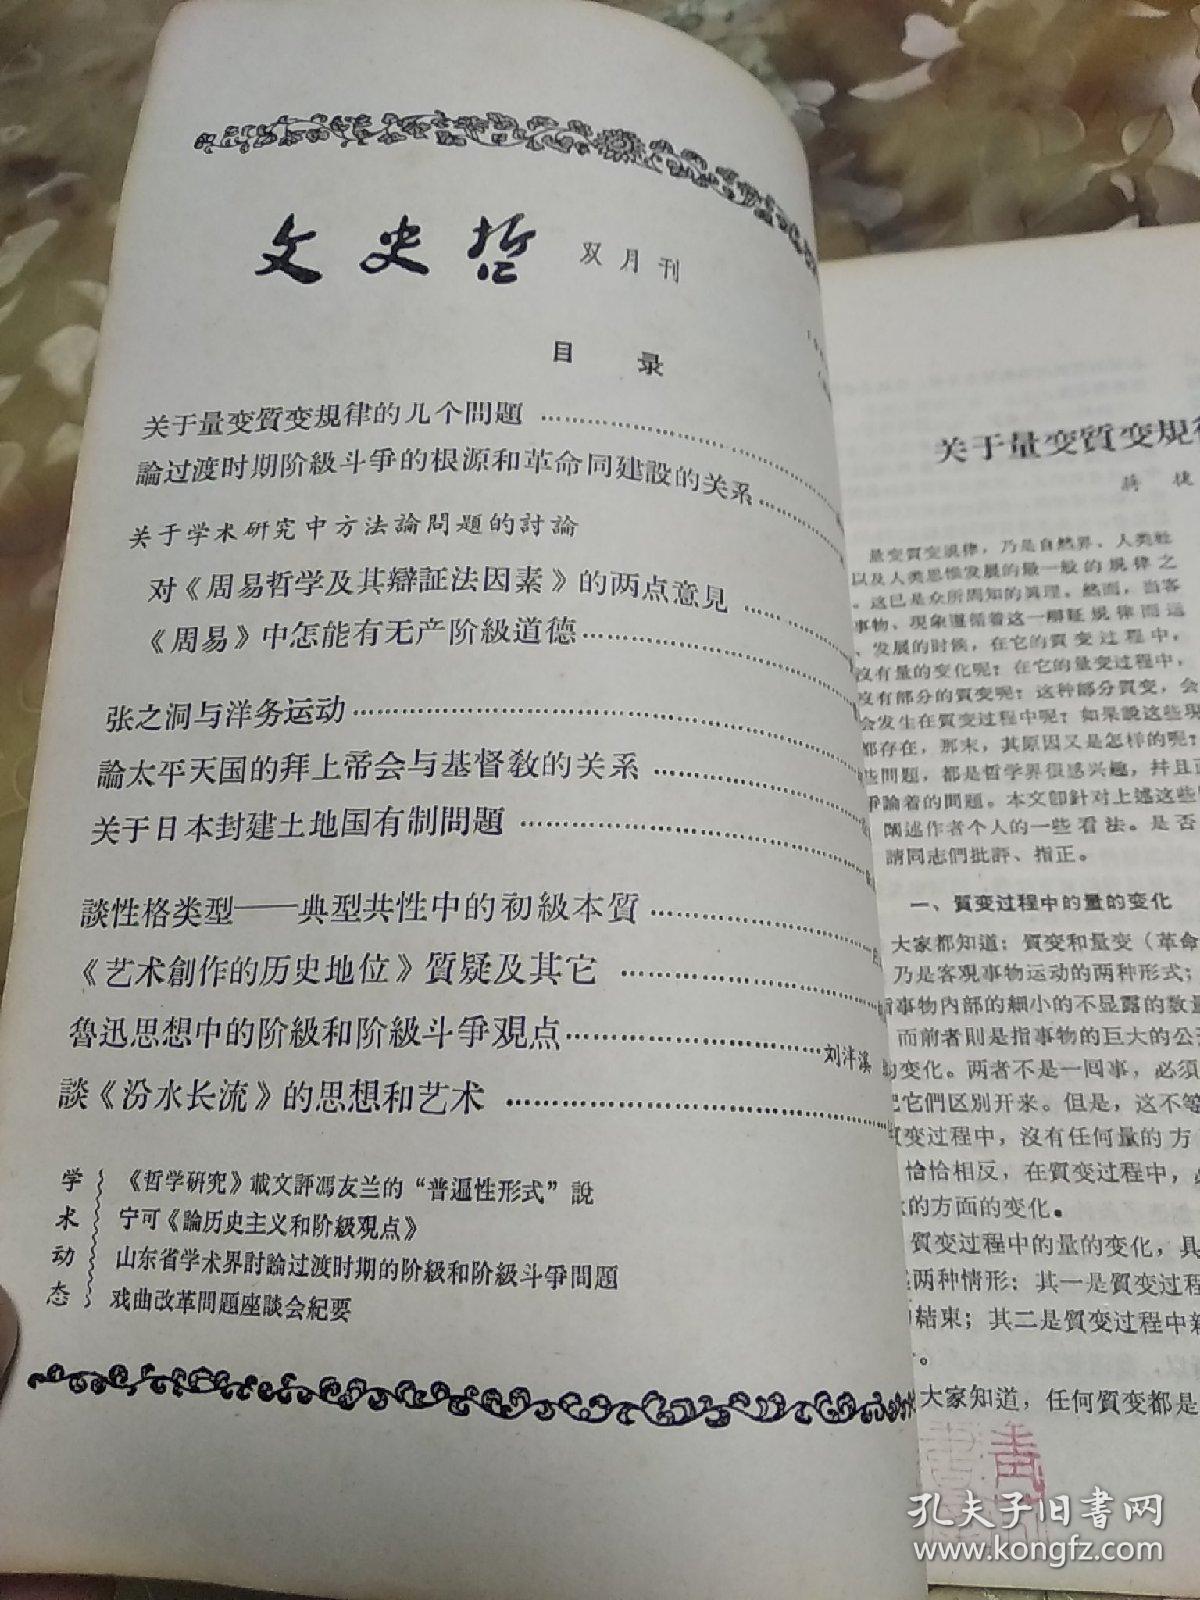 文史哲 双月刊
目 录
关于量变質变規律的几个問題
論过渡时期阶級斗爭的根源和革命同建設的关系
关于学术研究中方法論問題的討論
对《周易哲学及其辯証法因素》的两点意見
《周易》中怎能有无产阶級道德
张之洞与洋务运动
論太平天国的拜上帝会与基督教的关系
关于日本封建土地国有制問題
談性格类型——典型共性中的初級本質
《艺术創作的历史地位》質疑及其它
魯迅思想中的阶級和阶級斗爭观点 刘泮溪
談《汾水长流》的思想和艺术
学术动态
《哲学研究》載文評馮友兰的“普遍性形式”說
宁可《論历史主义和阶級观点》
山东省学术界討論过渡时期的阶級和阶級斗爭問題
戏曲改革問題座談会紀要
关于量变質变規
蔣 捷
量变質变規律，乃是自然界、人类社
以及人类思惟发展的最一般的規律之
。这已是众所周知的眞理。然而，当客
事物、现象遵循着这一辯証規律而运
、发展的时候，在它的質变过程中，
沒有量的变化呢？在它的量变过程中，
沒有部分的質变呢？这种部分質变，会
会发生在質变过程中呢？如果說这些現
都存在，那末，其原因又是怎样的呢？
些問題，都是哲学界很感兴趣，幷且
爭論着的問題。本文卽針对上述这些
闡述作者个人的一些看法。是否
請同志們批評、指正。
一、質变过程中的量的变化
大家都知道：質变和量变（革命
乃是客观事物运动的两种形式；
指事物內部的細小的不显露的数量
而前者則是指事物的巨大的公
的变化。两者不是一回事，必須
把它們区別开来。但是，这不等
質变过程中，沒有任何量的方
恰恰相反，在質变过程中，
的方面的变化。
質变过程中的量的变化，具
两种情形：其一是質变过程
結束；其二是質变过程中新
。
大家知道，任何質变都是
孔夫子旧書网
www.kongfz.com